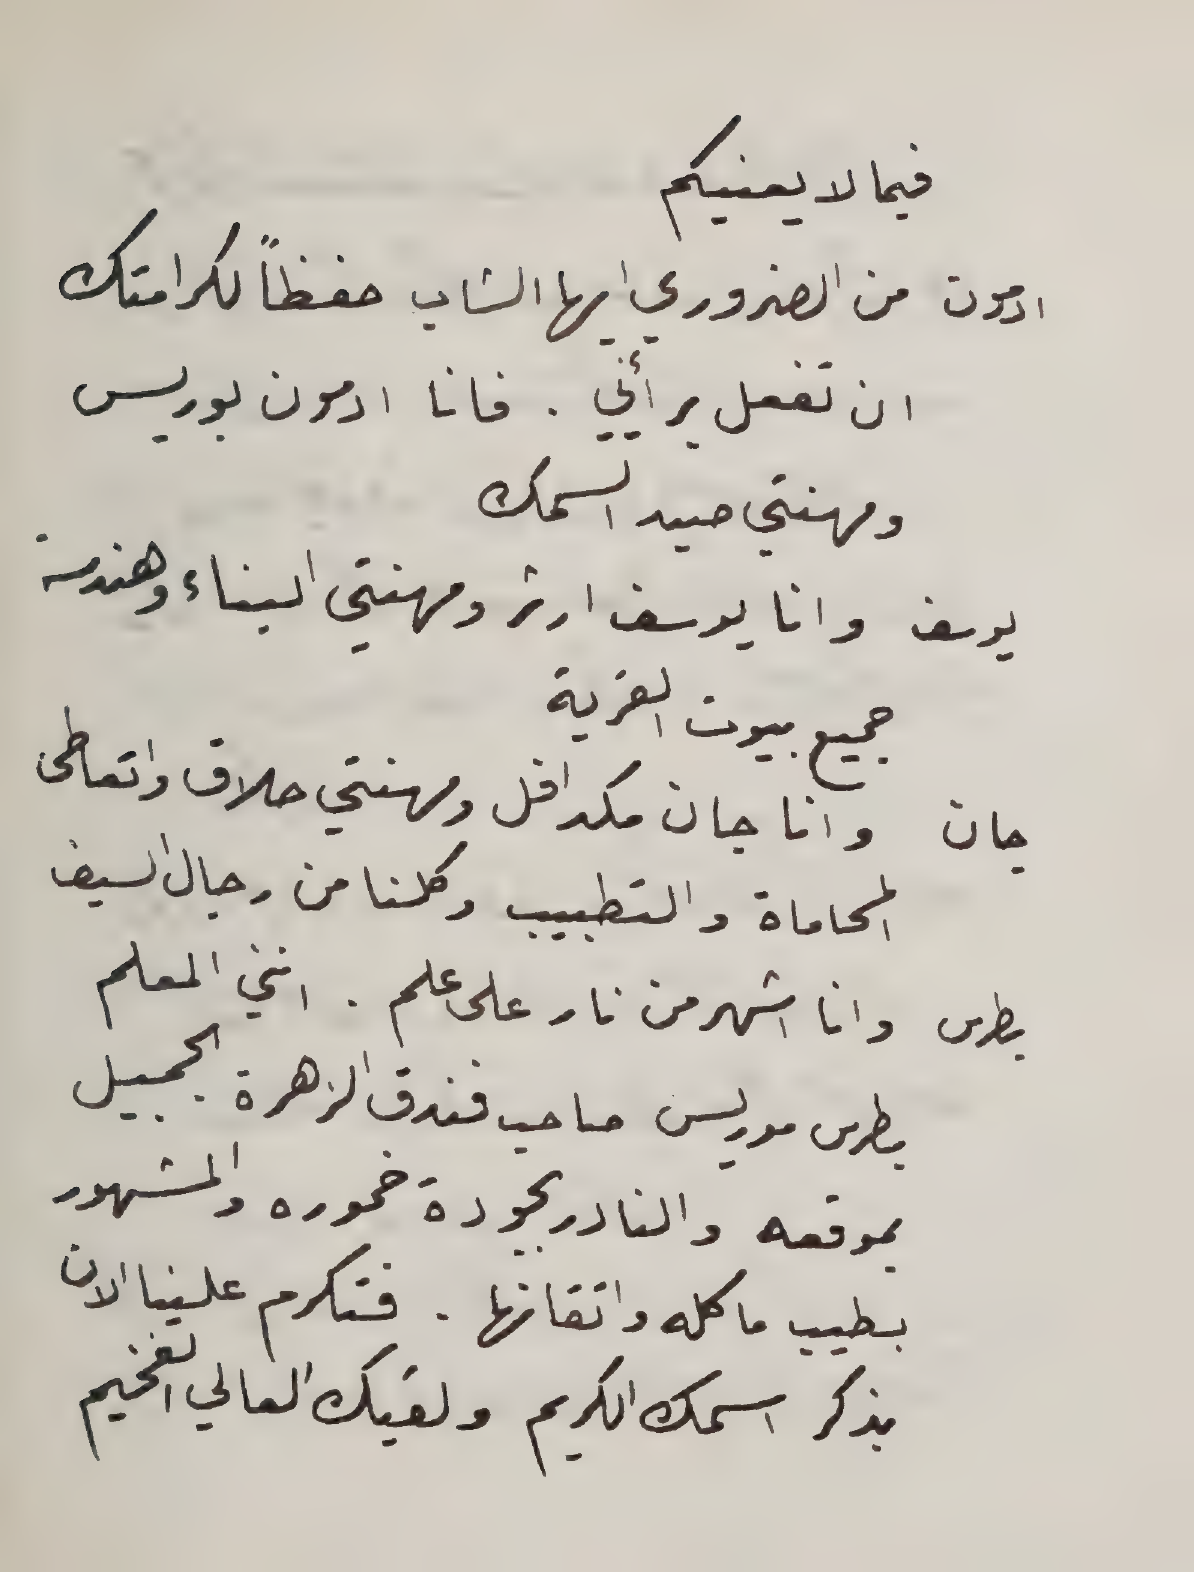 فيما لا يعنيكم
ادمون من الضروري ايها الشاب حفظاً لكرامتك
ان تفعل برأيي . فانا ادمون بوريس
ومهنتي صيد السمك
يوسف وانا يوسف ارثر ومهنتي البناء وهندسة
جميع بيوت القرية
جان وانا جان مكدافل ومهنتي حلاق واتعاطى
المحاماة والتطبيب وكلنا من رجال السيف
بطرس وانا اشهر من نار على علم . انني المعلم
بطرس موريس صاحب فندق الزهرة الجميل
بموقعه والنادر بجودة خموره والمشهور
بطيب ماكله واتقانها . فتكرم علينا الان
بذكر اسمك الكريم ولقبك العالي الفخيم